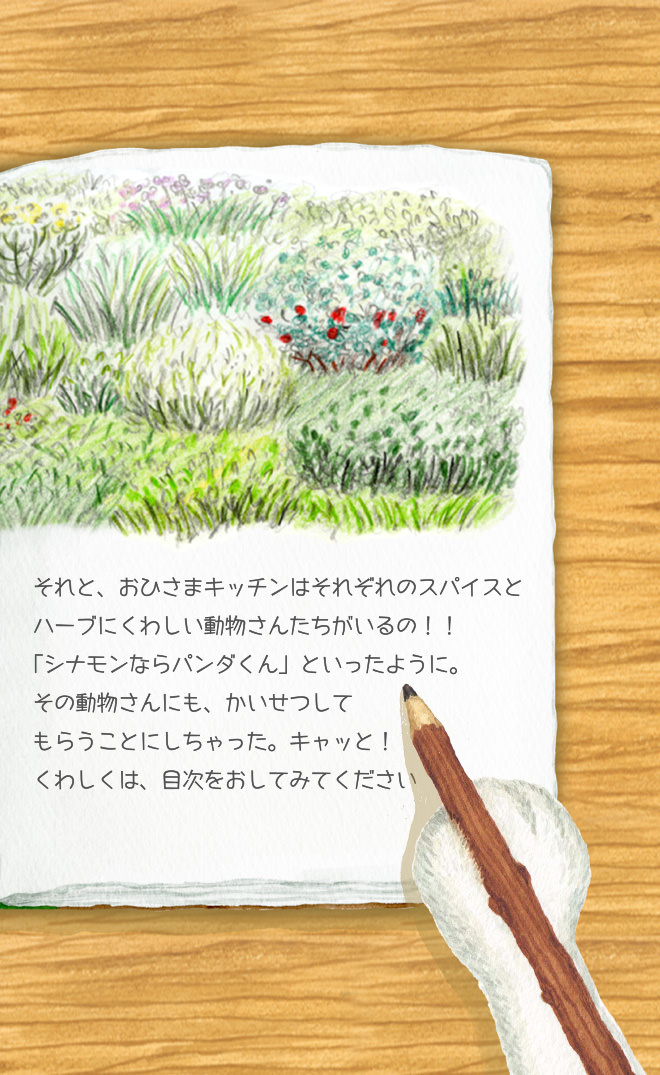 それと、おひさまキッチンはそれぞれのスパイスと
ハーブにくわしい動物さんたちがいるの！！
「シナモンならパンダくん」といったように。
その動物さんにも、かいせつして
もらうことにしちゃった。キャッと！
くわしくは、目次をおしてみてください